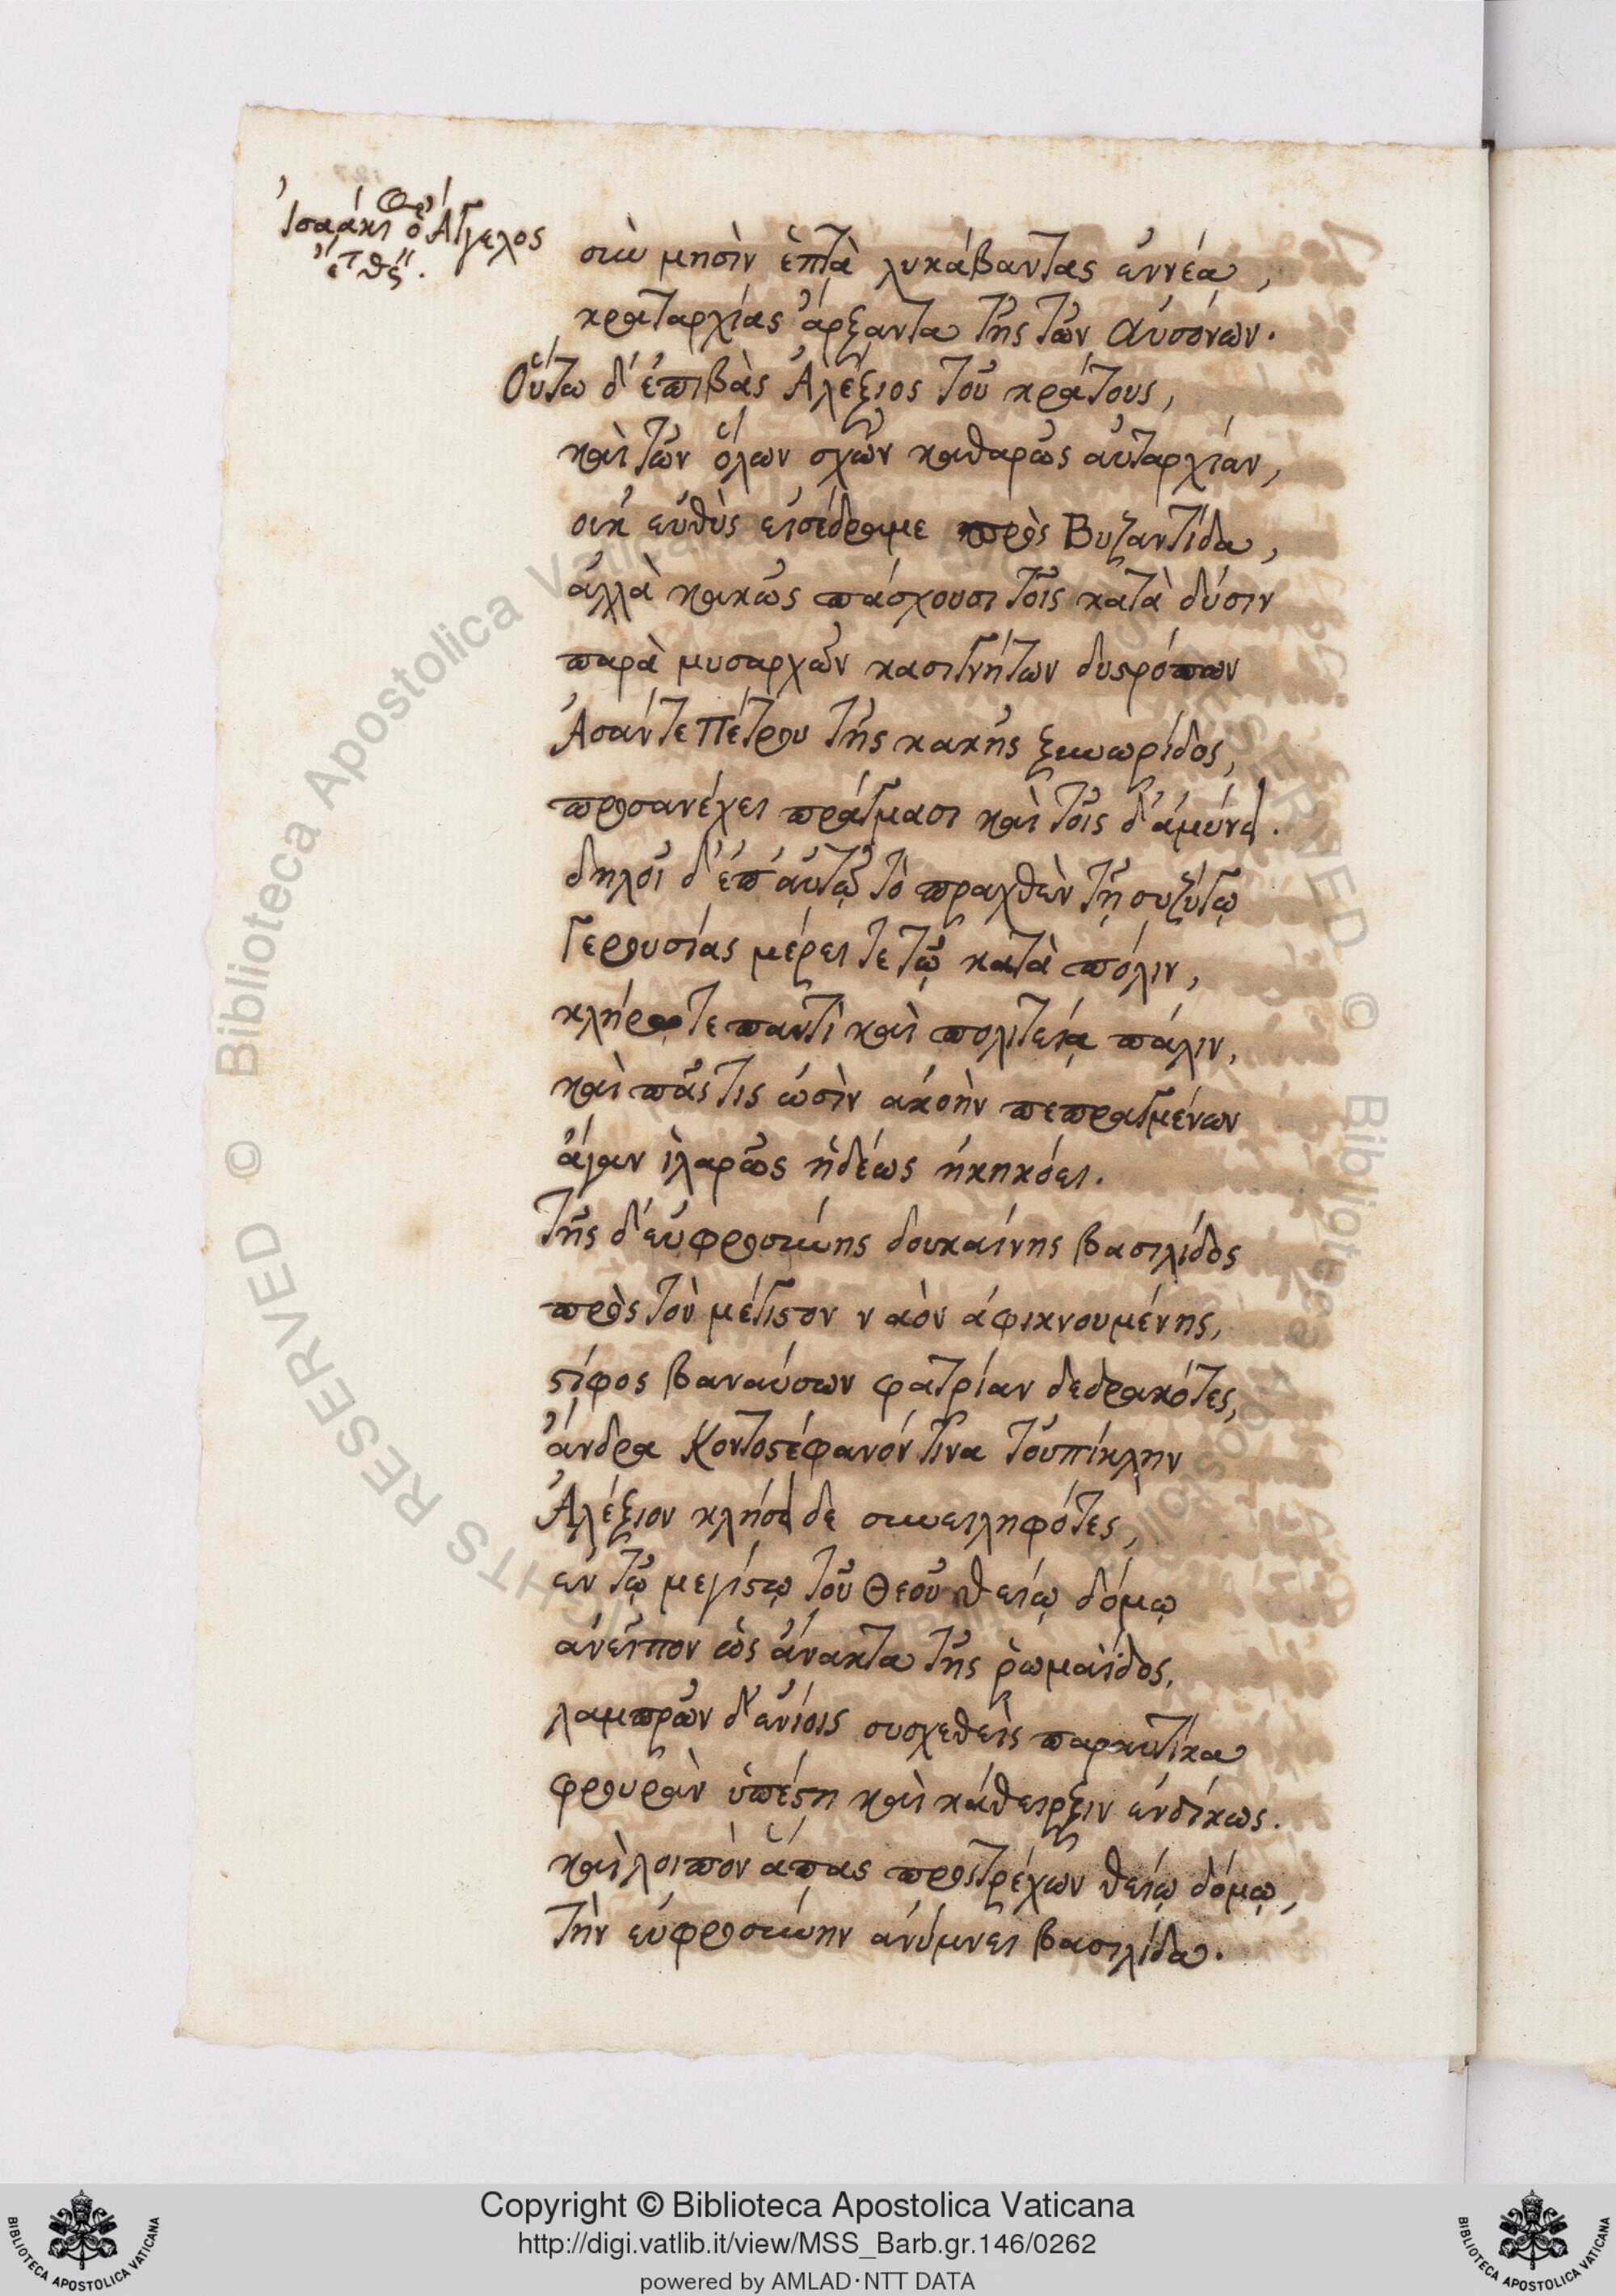 Ἰσαάκι ὁ Ἄγγελος
ἔτ θς΄΄.
σὺν μησὶν ἑπτὰ λυκάβαντας ἐννέα,
κραταρχίας ἄρξαντα τῆς τῶν Αὐσόνων.
Οὕτω δ' ἐπιβὰς Ἀλέξιος τοῦ κράτους,
καὶ τῶν ὅλων σχὼν καθαρῶς αὐταρχίαν,
οὐκ εὐθὺς εἰσέδραμε πρὸς Βυζαντίδα,
ἀλλὰ κακῶς πάσχουσι τοῖς κατὰ δύσιν
παρὰ μυσαρχῶν κασιγνήτων δυστρόπων
Ἀσάν τε Πέτρου τῆς κακῆς ξυνωρίδος,
προσανέχει πράγμασι καὶ τοῖς δ' ἀμύνει.
δηλοῖ δ' ἐπ' αὐτῷ τὸ πραχθὲν τῇ συζύγῳ
Γερουσίας μέρει τε τῷ κατὰ πόλιν,
κλήρῳ τε παντὶ καὶ πολιτείᾳ πάλιν,
καὶ πᾶς τις ὠσὶν ἀκοὴν πεπραγμένων
ἄγαν ἱλαρῶς ἡδέως ἠκηκόει.
Τῆς δ' εὐφροσύνης δουκαίνης βασιλίδος
πρὸς τὸν μέγιστον ναὸν ἀφικνουμένης,
στίφος βαναύσων φατρίαν δεδρακότες,
ἄνδρα Κοντοστέφανόν τινα τοὐπίκλην
Ἀλέξιον κλήσει δε συνειληφότες,
ἐν τῷ μεγίστῳ τοῦ Θεοῦ θείῳ δόμῳ
ἀνεῖπον ὡς ἄνακτα τῆς ῥωμαΐδος,
λαμπρῶν δ' ἐνίοις συσχεθεὶς παραυτίκα
φρουρὰν ὑπέστη καὶ κάθειρξιν ἐνδίκως.
καὶ λοιπὸν ἅπας προστρέχων θείῳ δόμῳ,
Τὴν εὐφροσύνην ἀνύμνει βασιλίδα.
Copyright © Biblioteca Apostolica Vaticana
http://digi.vatlib.it/view/MSS_Barb.gr.146/0262
powered by AMLAD·NTT DATA